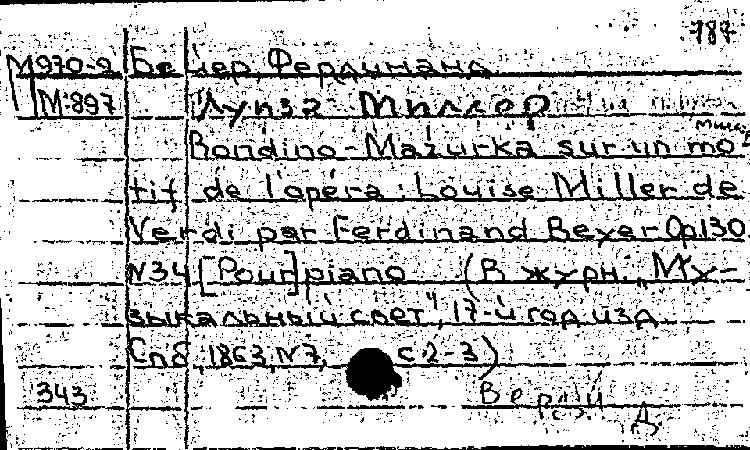 787
М970-2 Бейер, Фердинанд.
М:897 "Луиза Миллер"
Rondino-Mazurka sur un mo-
tif de l'opéra: Louise Miller de
Verdi par Ferdinand Beyer Op130
N34 [Pour] piano (В журн. „Му-
зыкальный свет", 17-й год изд.
Спб, 1863, N7, с 2-3)
343 Верди Д.